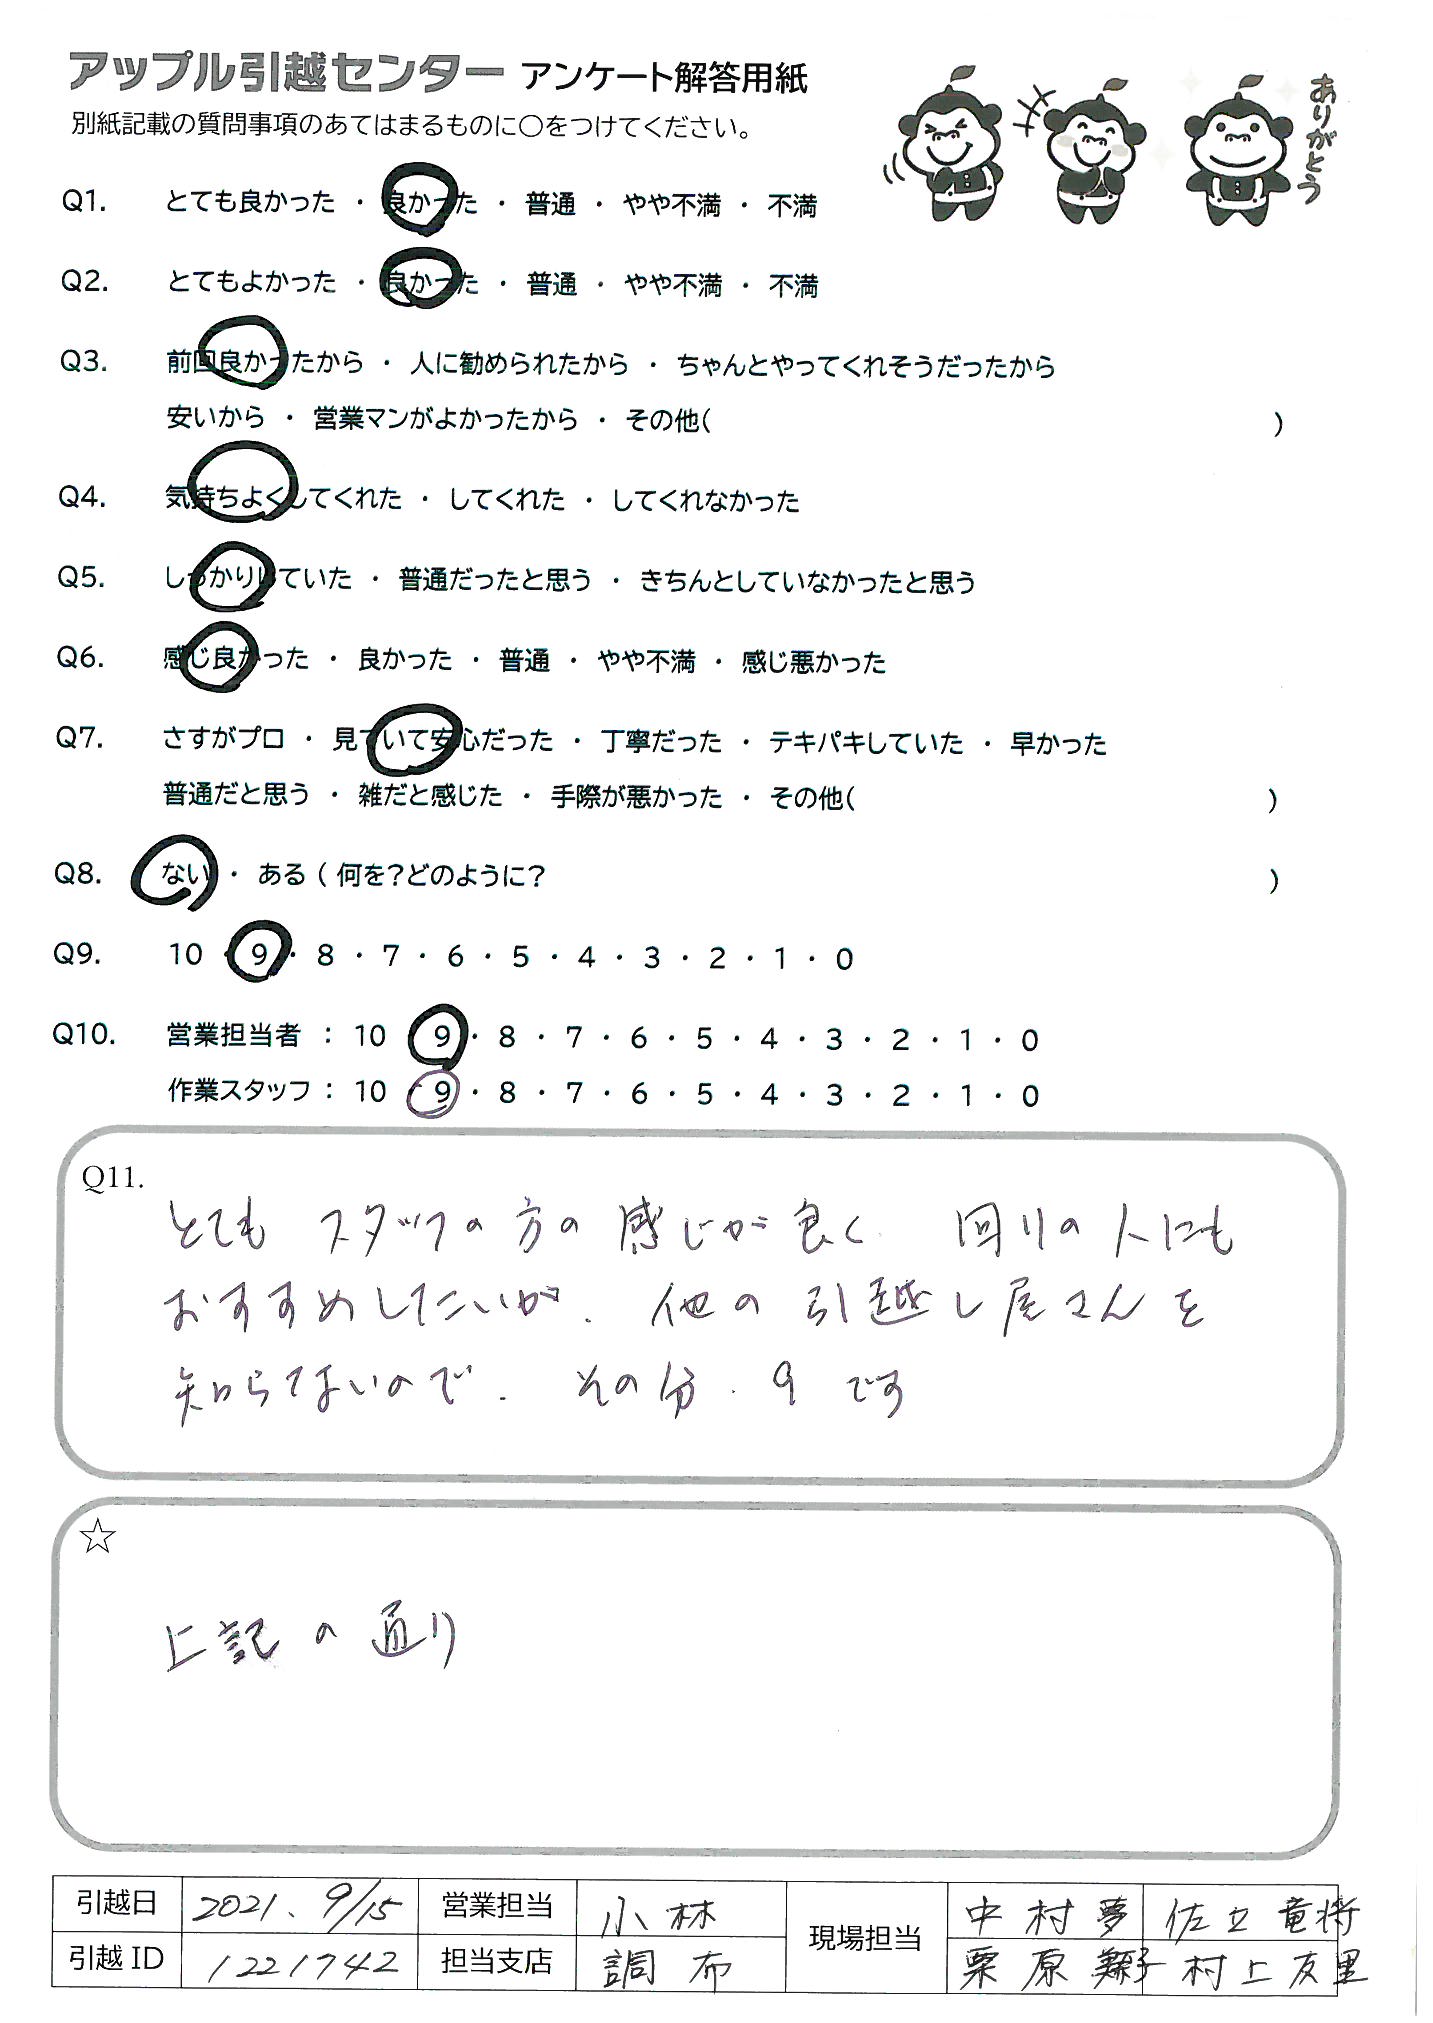 アップル引越センター アンケート解答用紙
ありがとう
別紙記載の質問事項のあてはまるものに○をつけてください。
Q1. とても良かった ・ 良かった ・ 普通 ・ やや不満 ・ 不満
Q2. とてもよかった ・ 良かった ・ 普通 ・ やや不満 ・ 不満
Q3. 前回良かったから ・ 人に勧められたから ・ ちゃんとやってくれそうだったから
安いから ・ 営業マンがよかったから ・ その他( )
Q4. 気持ちよくしてくれた ・ してくれた ・ してくれなかった
Q5. しっかりしていた ・ 普通だったと思う ・ きちんとしていなかったと思う
Q6. 感じ良かった ・ 良かった ・ 普通 ・ やや不満 ・ 感じ悪かった
Q7. さすがプロ ・ 見ていて安心だった ・ 丁寧だった ・ テキパキしていた ・ 早かった
普通だと思う ・ 雑だと感じた ・ 手際が悪かった ・ その他( )
Q8. ない ・ ある ( 何を?どのように? )
Q9. 10 ・ 9 ・ 8 ・ 7 ・ 6 ・ 5 ・ 4 ・ 3 ・ 2 ・ 1 ・ 0
Q10. 営業担当者 : 10 ・ 9 ・ 8 ・ 7 ・ 6 ・ 5 ・ 4 ・ 3 ・ 2 ・ 1 ・ 0
作業スタッフ : 10 ・ 9 ・ 8 ・ 7 ・ 6 ・ 5 ・ 4 ・ 3 ・ 2 ・ 1 ・ 0
Q11.
とても スタッフの方の感じが良く 回りの人にも
おすすめしたいが、他の引越し屋さんを
知らてないので、その分、9です
☆
上記の通り
引越日 2021、9/15 営業担当 小林 現場担当 中村夢 佐立竜将
引越ID 1221742 担当支店 調布 栗原 村上友里